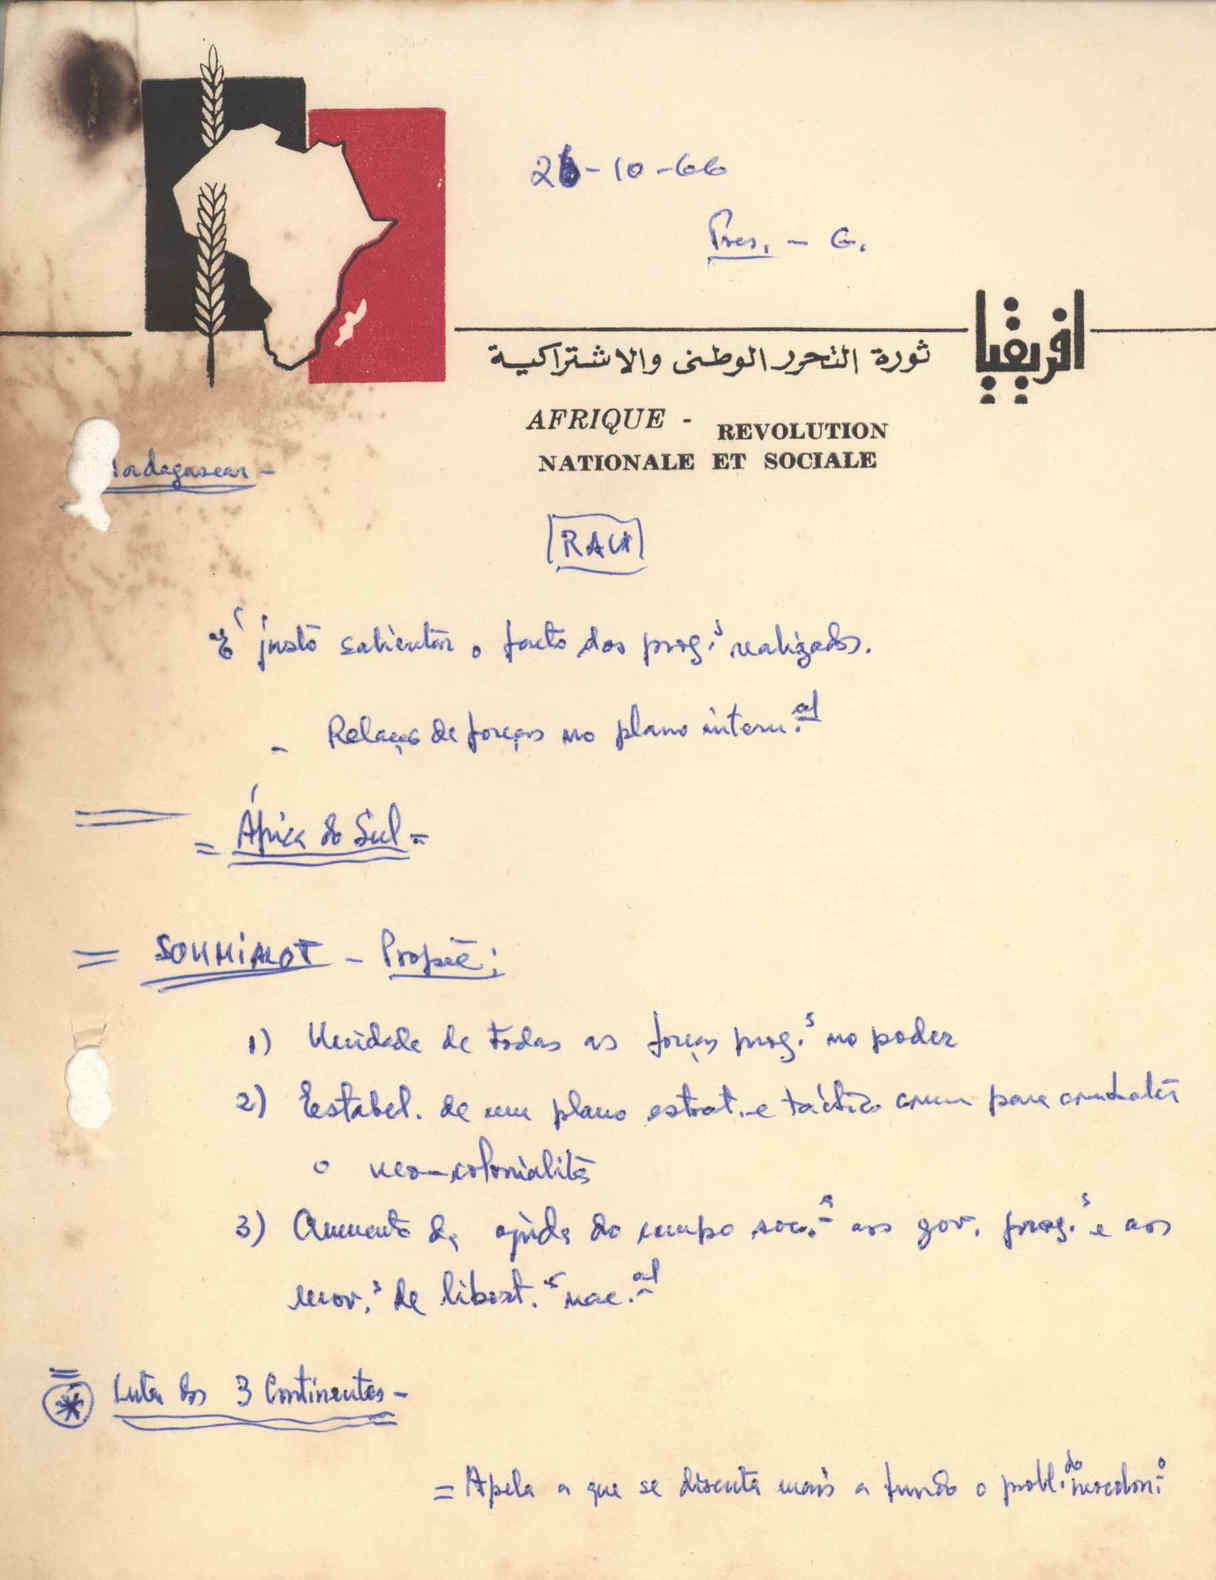 26-10-66
Pres. - G.
افريقيا
ثورة التحرر الوطنى والاشتراكية
AFRIQUE - REVOLUTION
NATIONALE ET SOCIALE
Madagascar -
É justo salientar o facto dos prog.s realizados.
- Relação de forças no plano intern.al
= África do Sul =
= SOUMIALOT - Propõe:
1) Unidade de todas as forças prog.s no poder
2) Estabel. de um plano estrat. e táctico comum para combater
o neo-colonialismo
3) Aumento da ajuda do campo soc.a aos gov. prog.s e aos
mov.s de libert. nac.al
= * Luta dos 3 Continentes -
= Apela a que se discuta mais a fundo o probl. do neocolon.o